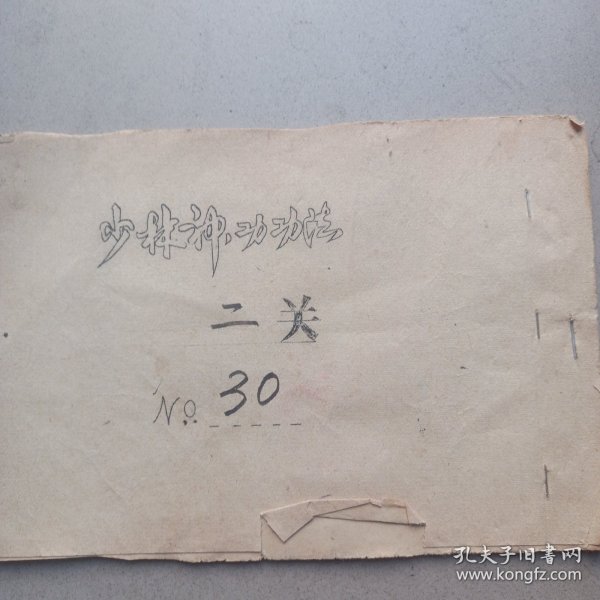 少林神功功法
二关
No. 30
孔夫子旧書网
www.kongfz.com